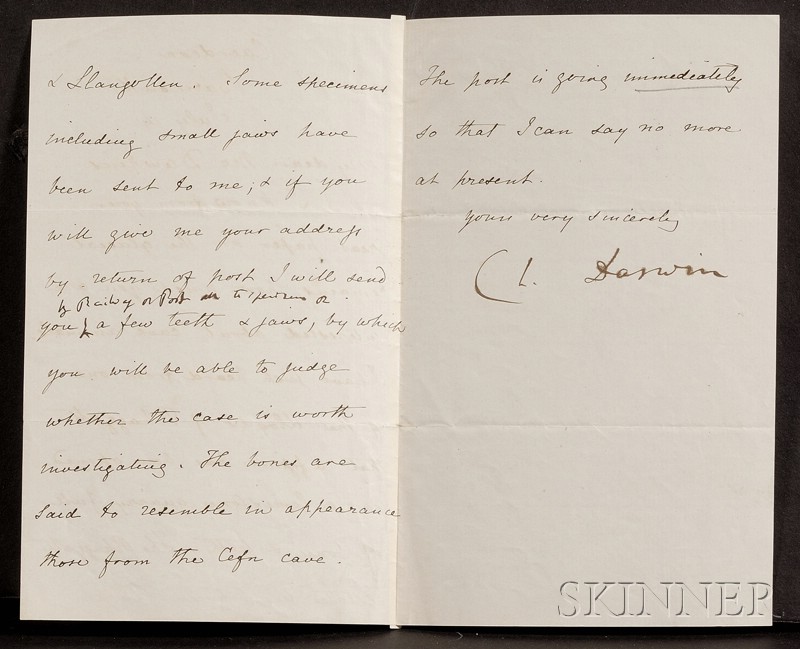 & Llangollen. Some specimens
including small jaws have
been sent to me; & if you
will give me your address
by return of post I will send
by Railway or Post
you a few teeth & jaws, by which
you will be able to judge
whether the case is worth
investigating. The bones are
said to resemble in appearance
those from the Cefn cave.
The post is going immediately
so that I can say no more
at present.
yours very sincerely
Ch. Darwin
SKINNER